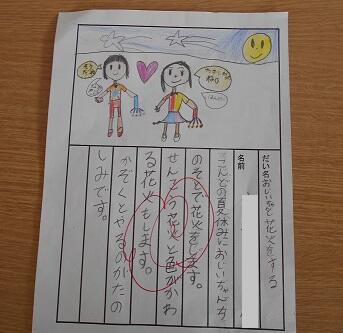 だい名 おじいちゃんと花火をする
名前
こんどの夏休みにおじいちゃんち
のそとで花火をします。
せんこう花火と色がかわ
る花火もします。
かぞくとやるのがたの
しみです。